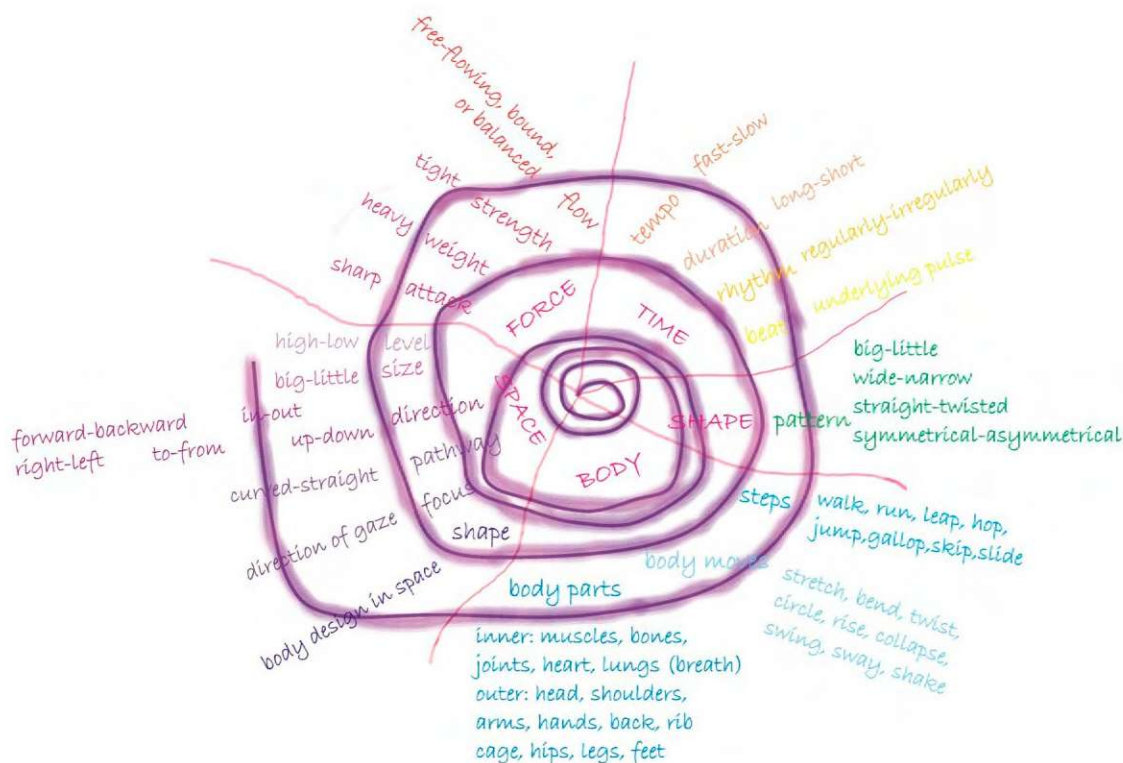 free-flowing, bound,
or balanced
flow
tight
strength
heavy
weight
sharp
attack
FORCE
fast-slow
tempo
long-short
duration
regularly-irregularly
rhythm
underlying pulse
beat
TIME
high-low
level
big-little
size
forward-backward
in-out
right-left
to-from
up-down
direction
curved-straight
pathway
direction of gaze
focus
body design in space
shape
SPACE
SHAPE
pattern
big-little
wide-narrow
straight-twisted
symmetrical-asymmetrical
BODY
steps
walk, run, leap, hop,
jump,gallop,skip,slide
body moves
stretch, bend, twist,
circle, rise, collapse,
swing, sway, shake
body parts
inner: muscles, bones,
joints, heart, lungs (breath)
outer: head, shoulders,
arms, hands, back, rib
cage, hips, legs, feet